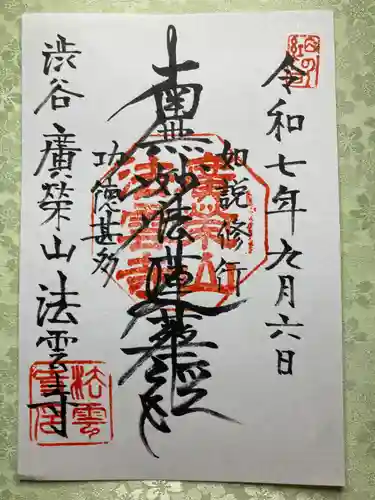 令和七年九月六日
如説修行
南無妙法蓮華経
功徳甚多
渋谷 廣栄山 法雲寺
廣栄山
法雲寺